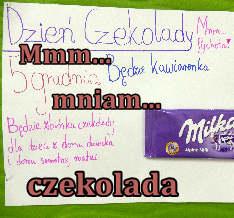 Dzień Czekolady
Mmm...
Pychota!
Mmm...
5 grudnia
Będzie kawiarenka
mniam...
Będzie zbiórka czekolady
dla dzieci z domu dziecka
i domu samotnej matki
Milka
Alpine Milk
czekolada